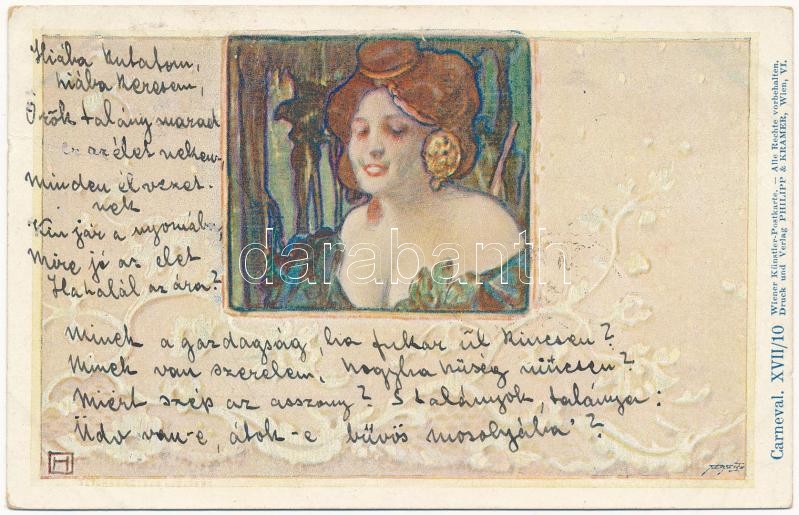 Hiába kutatom,
hiába keresem,
Örök talány marad
ez az élet nekem.
Minden élvezet-
nek
Kin jár a nyomába,
Mire jó az élet
Ha halál az ára?
Minek a gazdagság, ha fukar ül kincsen?
Minek van szerelem, hogyha hűség nincsen?
Miért szép az asszony? S talányok talánya:
Üdv van-e, átok-e bűvös mosolyába'?
darabanth
H
Carneval. XVII/10
Wiener Künstler-Postkarte. — Alle Rechte vorbehalten.
Druck und Verlag PHILIPP & KRAMER, Wien, VI.